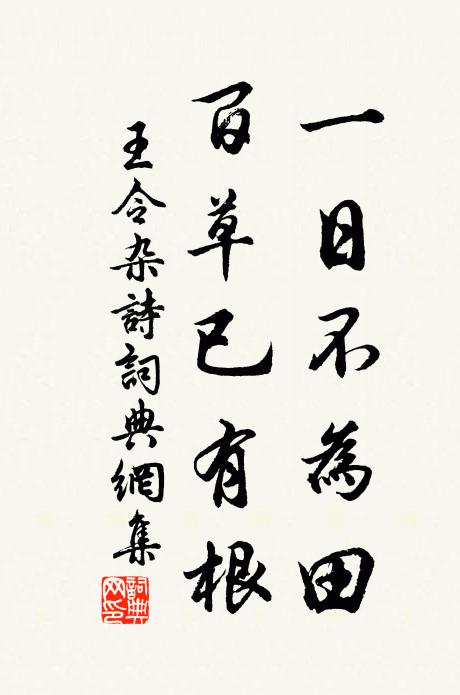 一日不為田
百草已有根
王令杂詩詞典網集
詞典網印